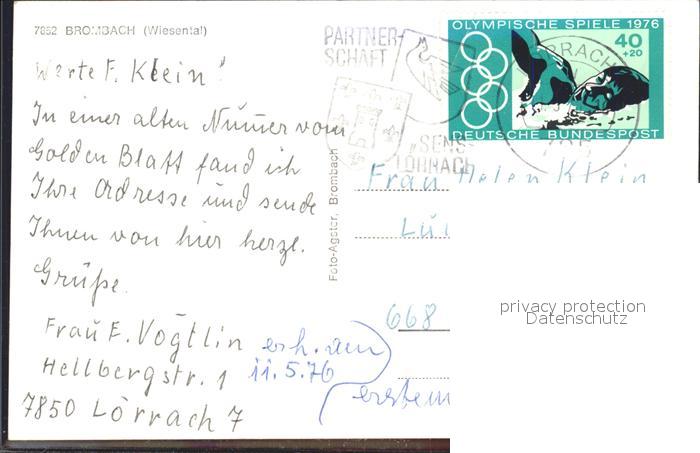 7852 BROMBACH (Wiesental)
PARTNER-
SCHAFT
SENS-
LÖRRACH
LÖRRACH
OLYMPISCHE SPIELE 1976
40
+20
DEUTSCHE BUNDESPOST
Werte F. Klein!
In einer alten Numer vom
Golden Blatt fand ich
Ihre Adresse und sende
Ihnen von hier herzl.
Grüße.
Frau E. Vögtlin
Hellbergstr. 1
7850 Lörrach 7
erh. am
11.5.76
erstem
Foto-Agster, Brombach
Frau Helen Klein
668
privacy protection
Datenschutz